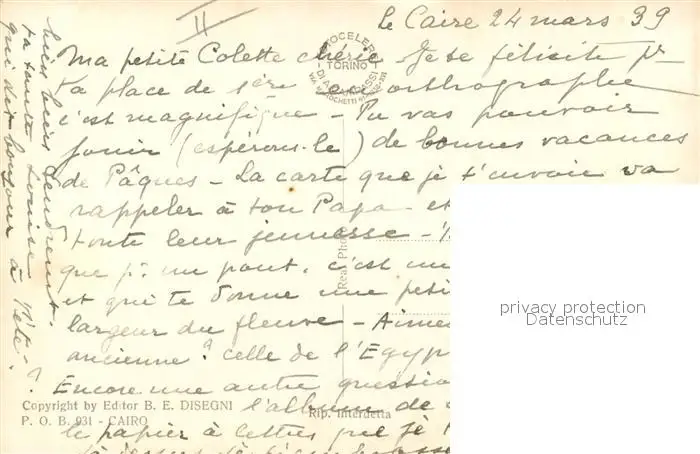 II
Le Caire 24 mars 39
Ma petite Colette chérie. Je te félicite pr
ta place de 1ère en orthographie
c'est magnifique - Tu vas pouvoir
jouir (espérons-le) de bonnes vacances
de Pâques - La carte que je t'envoie va
rappeler à ton Papa et
toute leur jeunesse -
que pr un pont, c'est un
et qui te donne une peti
largeur du fleuve - Aimes
ancienne? celle de l'Egyp
Encore une autre questio
l'album de
le papier à lettres que je
bien tendrement.
ta tante Louise
qui dit bonjour à
FOTOCELERE
TORINO
DI A. CAMPASSI
Real Photo
Copyright by Editor B. E. DISEGNI
P. O. B. 931 - CAIRO
Rip. interdetta
privacy protection
Datenschutz